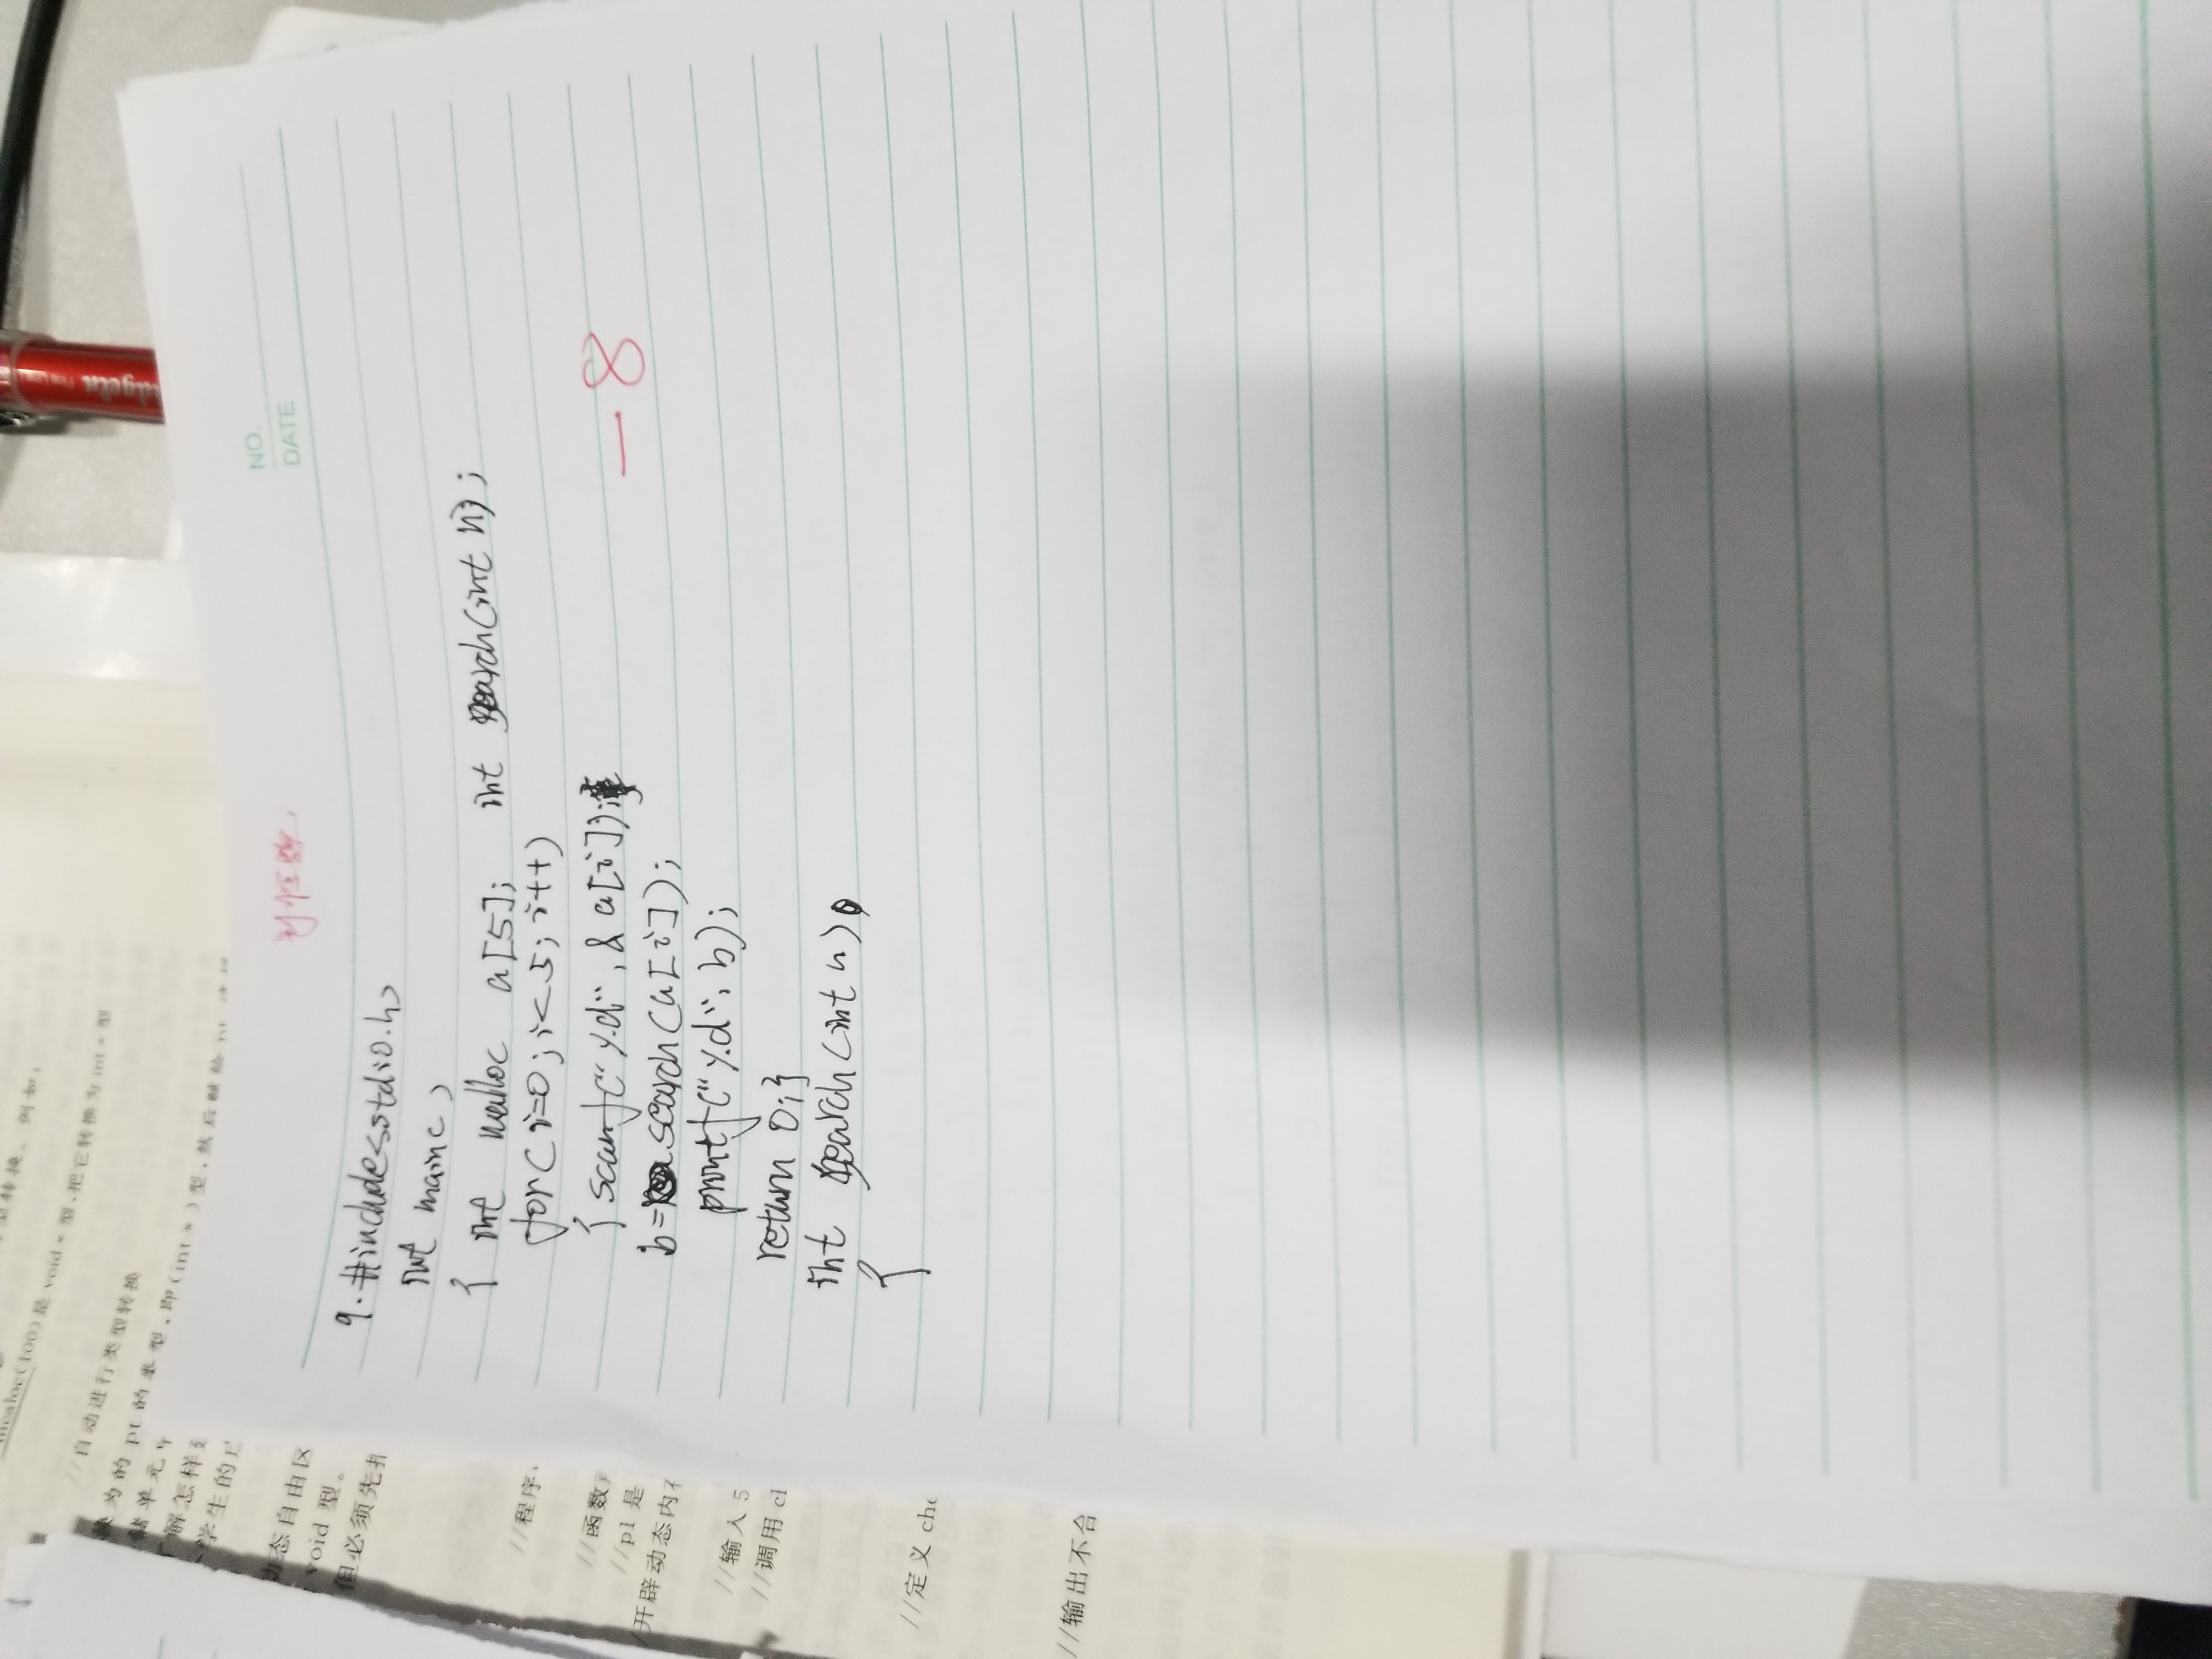 型转换。例如:
mcaloc(100)是 void * 型,把它转换为 int * 型
//自动进行类型转换
换为的 pt 的类型,即(int *)型,然后赋给 pt
储单元中
解怎样
学生的
动态自由区
void 型。
但必须先
//程序
//函数
//p1 是
/开辟动态内存
//输入 5
//调用 ch
//定义 che
//输出不合
NO.
DATE
9. #include<stdio.h>
int main()
{ int malloc a[5]; int search(int n);
for(i=0;i<5;i++)
{ scanf("%d",&a[i]);
b=search(a[i]);
printf("%d",b);
return 0;}
int search(int n)
{
-8